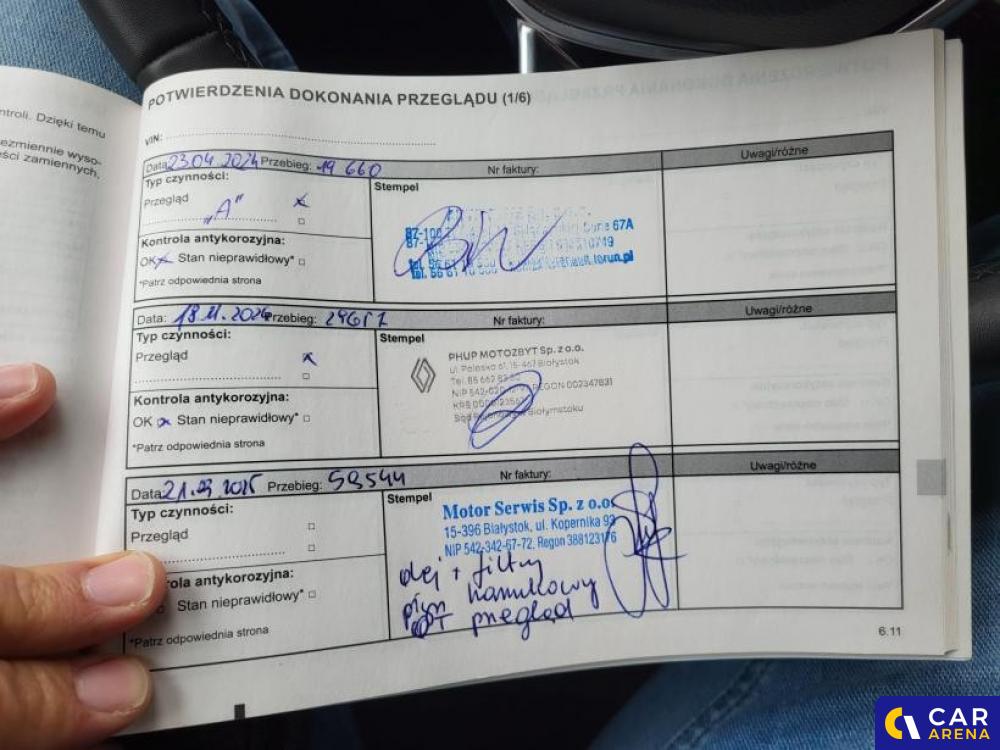 ntroli. Dzięki temu
ezmiennie wyso-
ści zamiennych,
POTWIERDZENIA DOKONANIA PRZEGLĄDU (1/6)
VIN:
Data 23.04.2024 Przebieg: 19 660 Nr faktury: Uwagi/różne
Typ czynności: Stempel
Przegląd
"A"
87-100 67A
Kontrola antykorozyjna:
OK Stan nieprawidłowy*
tel. 56 61 torun.pl
*Patrz odpowiednia strona
Data: 18.11.2024 Przebieg: Nr faktury: Uwagi/różne
Typ czynności: Stempel
Przegląd
PHUP MOTOZBYT Sp. z o.o.
15-467 Białystok
Tel. 85 662
NIP 542-020 REGON 002347831
KRS
Sąd w Białymstoku
Kontrola antykorozyjna:
OK Stan nieprawidłowy*
*Patrz odpowiednia strona
Data 21.03 2025 Przebieg: 59544 Nr faktury: Uwagi/różne
Typ czynności: Stempel
Przegląd
Motor Serwis Sp. z o.o.
15-396 Białystok, ul. Kopernika 93
NIP 542-342-67-72, Regon 388123176
olej + filtry
płyn hamulcowy
przegląd
ola antykorozyjna:
Stan nieprawidłowy*
*Patrz odpowiednia strona
6.11
CAR
ARENA